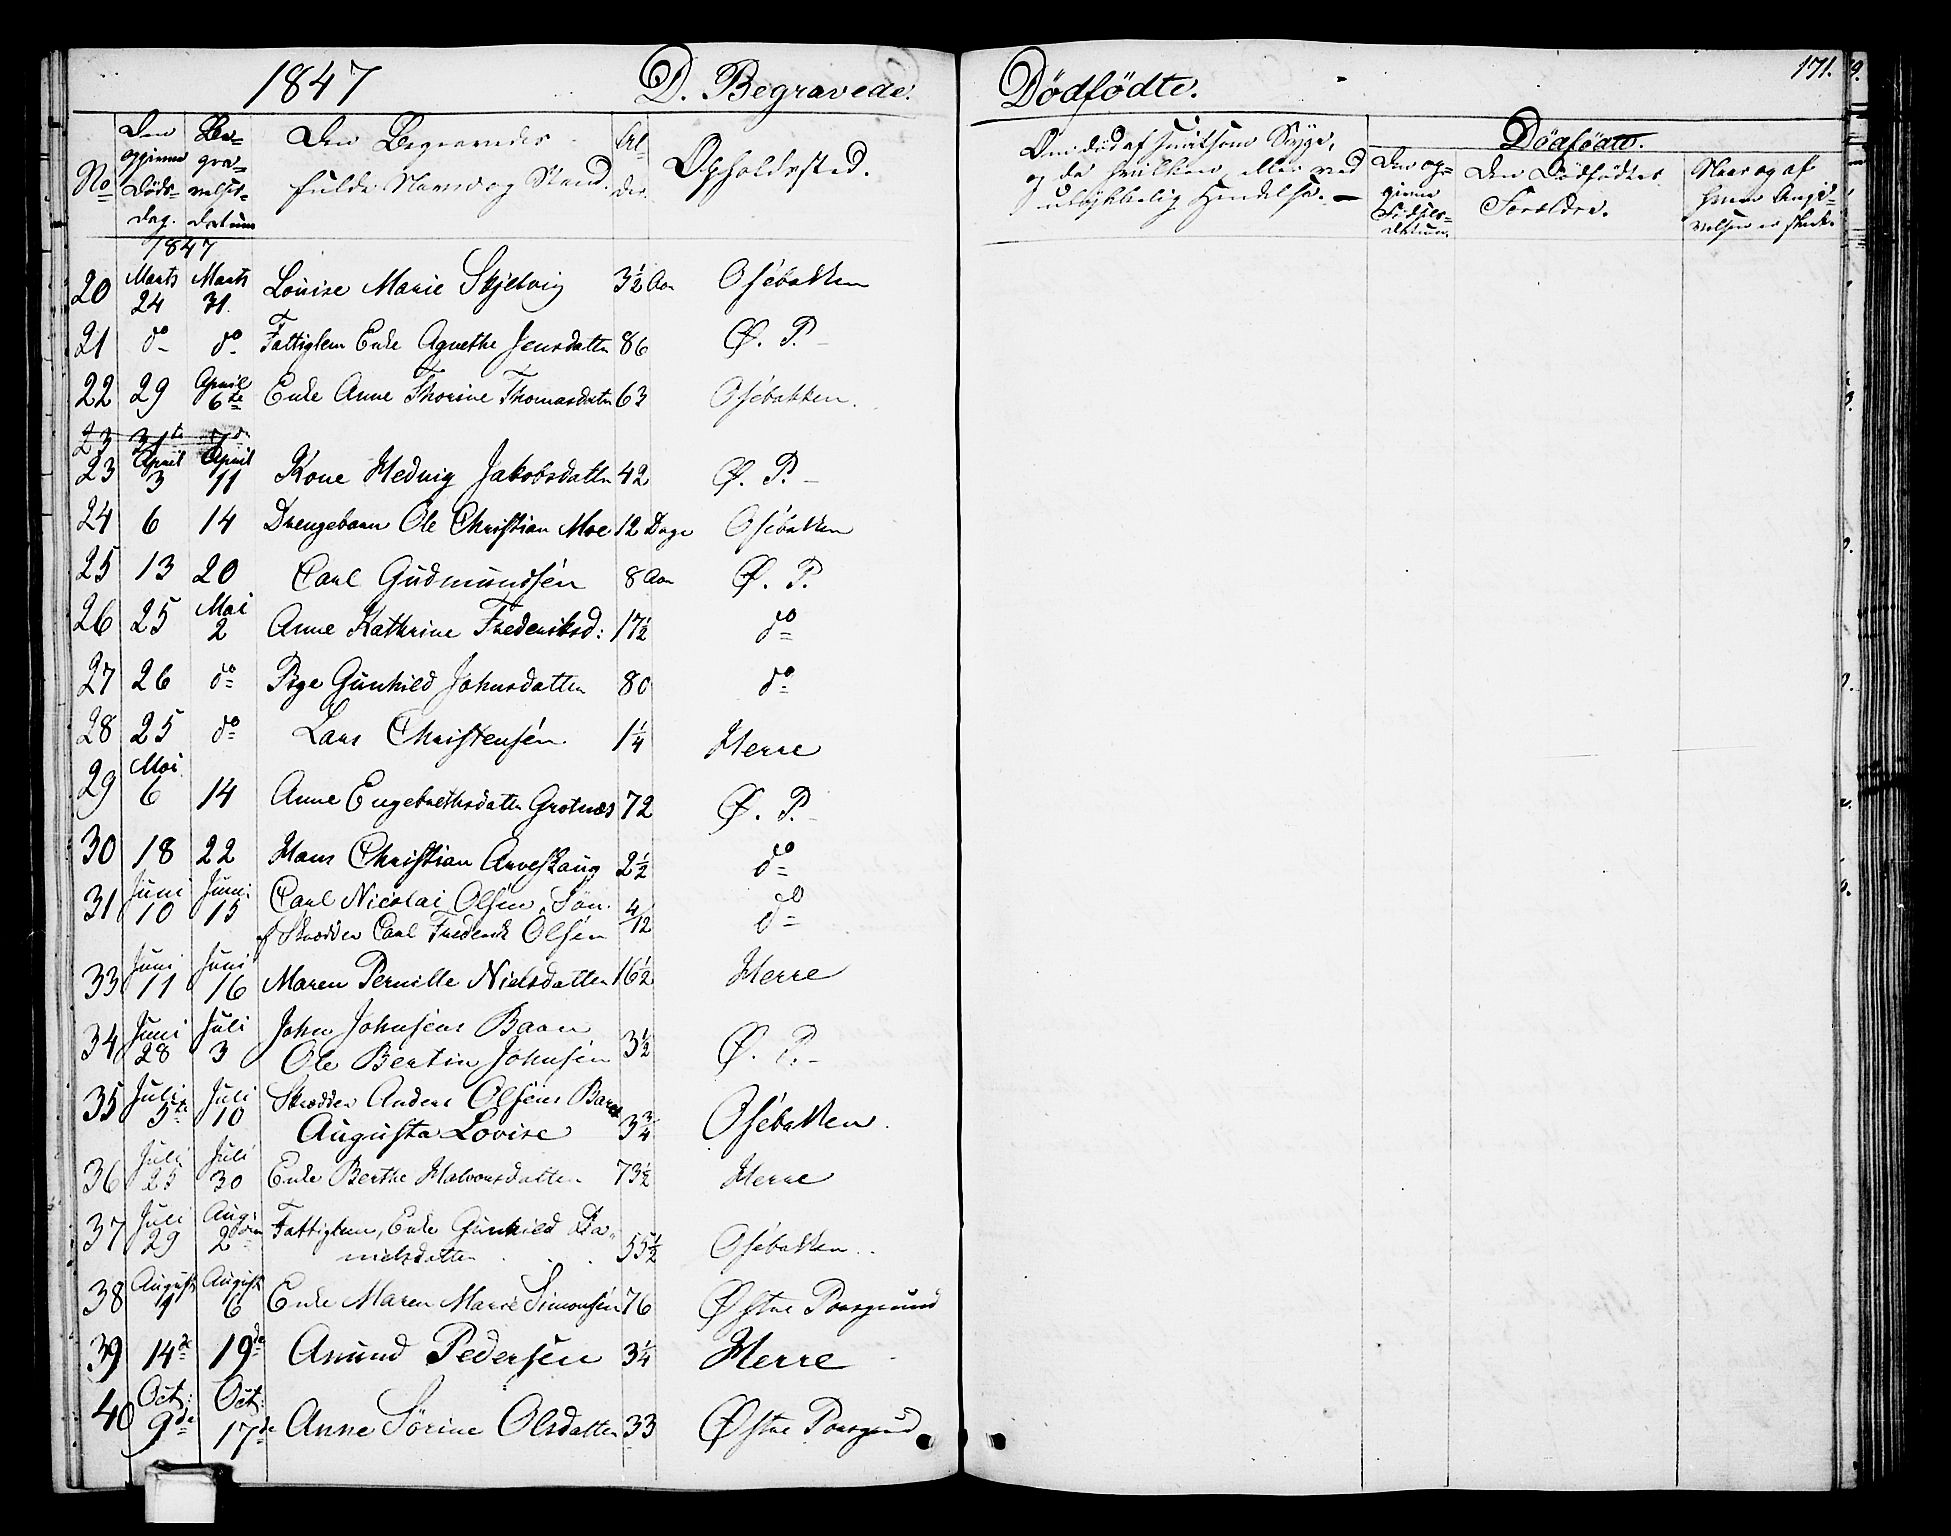 1847 D. Begravede. Dödfödte. 171.
No Den opgivne Döds-dag. Be-gra-velses-datum Den Begravedes fulde Navn og Stand. Al-der. Opholdssted.
Om död af smitsom Syge, og da hvilken, eller ved ulykkelig Hendelse. Dödfödte. Den op-givne Födsels-datum. Den Dödfödtes Forældre. Naar og af hvem Angi-velsen er skeet.
1847
20 Marts 24 Marts 31. Louise Marie Skjelvig 3½ Aar Osebakken
21 do do Fattiglem Enke Agnethe Jensdatter 86 Ø. P.
22 29 April 6te Enke Anne Thorine Thomasdatr 63 Osebakken.
23 31te 7de
23 April 3 April 11 Kone Hedvig Jakobsdatter 42 Ø. P.
24 6 14 Drengebarn Ole Christian Moe 12 Dage Osebakken
25 13 20 Carl Gudmundsen 8 Aar Ø. P.
26 25 Mai 2 Anne Kathrine Frederiksd: 17½ do
27 26 do Pige Gunhild Johnsdatter 80 do
28 25 do Lars Christensen 1¼ Herre
29 Mai 6 14 Anne Engebrethsdatter Grotnæs 72 Ø. P.
30 18 22 Hans Christian Arveskaug 2½ do
31 Juni 10 Juni: 15 Carl Nicolai Olsen, Sön.
af Skrædder Carl Frederik Olsen 4/12 do
33 Juni 11 Juni 16 Maren Pernille Nielsdatter 16½ Herre
34 Juni 28 Juli 3 John Johnsens Barn
Ole Bertin Johnsen 3½ Ø. P.
35 Juli 5te Juli 10 Skrædder Anders Olsens Barn
Augusta Lovise 3¾ Osebakken.
36 Juli 25 Juli 30 Enke Berthe Halvorsdatter 73½ Herre
37 Juli 29 Aug: 2den Fattiglem, Enke Gunhild Da-
nielsdatter 55½ Osebakken.
38 August 1 August 6 Enke Maren Marie Simonsen 76 Østre Porsgrund
39 14de 19de Amund Pedersen 3¼ Herre
40 Oct: 9de Oct: 17de Anne Sörine Olsdatter 33 Østre Porsgrund